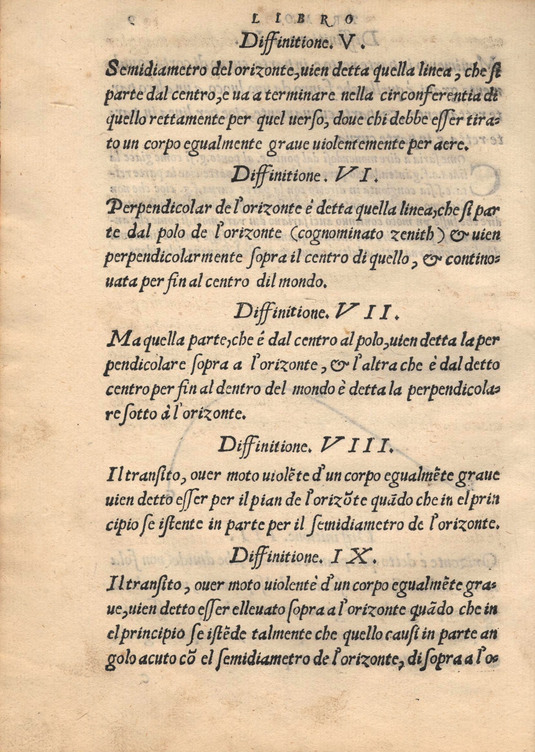 LIBRO
Diffinitione. V.
Semidiametro del orizonte, uien detta quella linea, che si
parte dal centro, e ua a terminare nella circonferentia di
quello rettamente per quel uerso, doue chi debbe esser tira-
to un corpo egualmente graue uiolentemente per aere.
Diffinitione. VI.
Perpendicolar de l'orizonte é detta quella linea, che si par
te dal polo de l'orizonte (cognominato zenith) & uien
perpendicolarmente sopra il centro di quello, & contino-
uata per fin al centro dil mondo.
Diffinitione. VII.
Ma quella parte, che é dal centro al polo, uien detta la per
pendicolare sopra a l'orizonte, & l'altra che è dal detto
centro per fin al dentro del mondo è detta la perpendicola-
re sotto à l'orizonte.
Diffinitione. VIII.
Il transito, ouer moto uiolẽte d'un corpo egualmẽte graue
uien detto esser per il pian de l'orizõte quãdo che in el prin
cipio se istente in parte per il semidiametro de l'orizonte.
Diffinitione. IX.
Il transito, ouer moto uiolentè d'un corpo egualmẽte gra-
ue, uien detto esser elleuato sopra a l'orizonte quãdo che in
el principio se istẽde talmente che quello causi in parte an
golo acuto cõ el semidiametro de l'orizonte, di sopra a l'o-